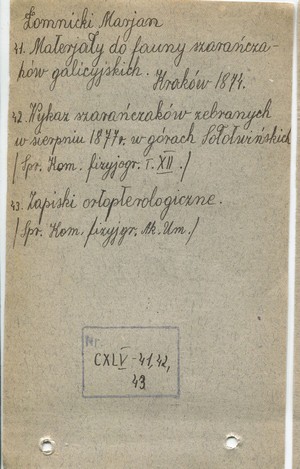 Łomnicki Marjan
41. Materjały do fauny szarańcza-
ków galicyjskich. Kraków 1874.
42. Wykaz szarańczaków zebranych
w sierpniu 1877 r. w górach Sołotwińskich
/Spr. Kom. fizyjogr. T. XII./
43. Zapiski ortopterologiczne.
/Spr. Kom. fizyjgr. Ak. Um./
Nr.
CXLV - 41, 42,
43.